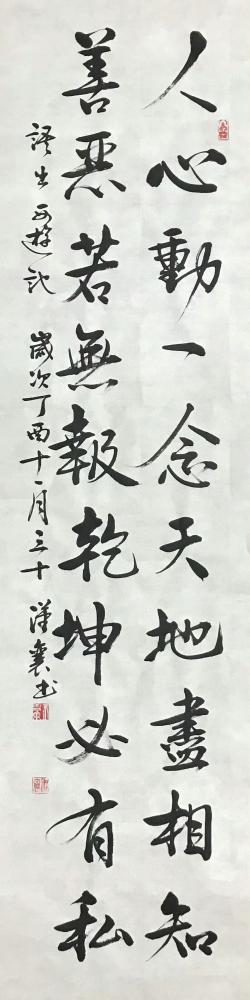 人心動一念天地盡相知
善惡若無報乾坤必有私
語出西遊記 歲次丁酉十一月三十 漢襄书